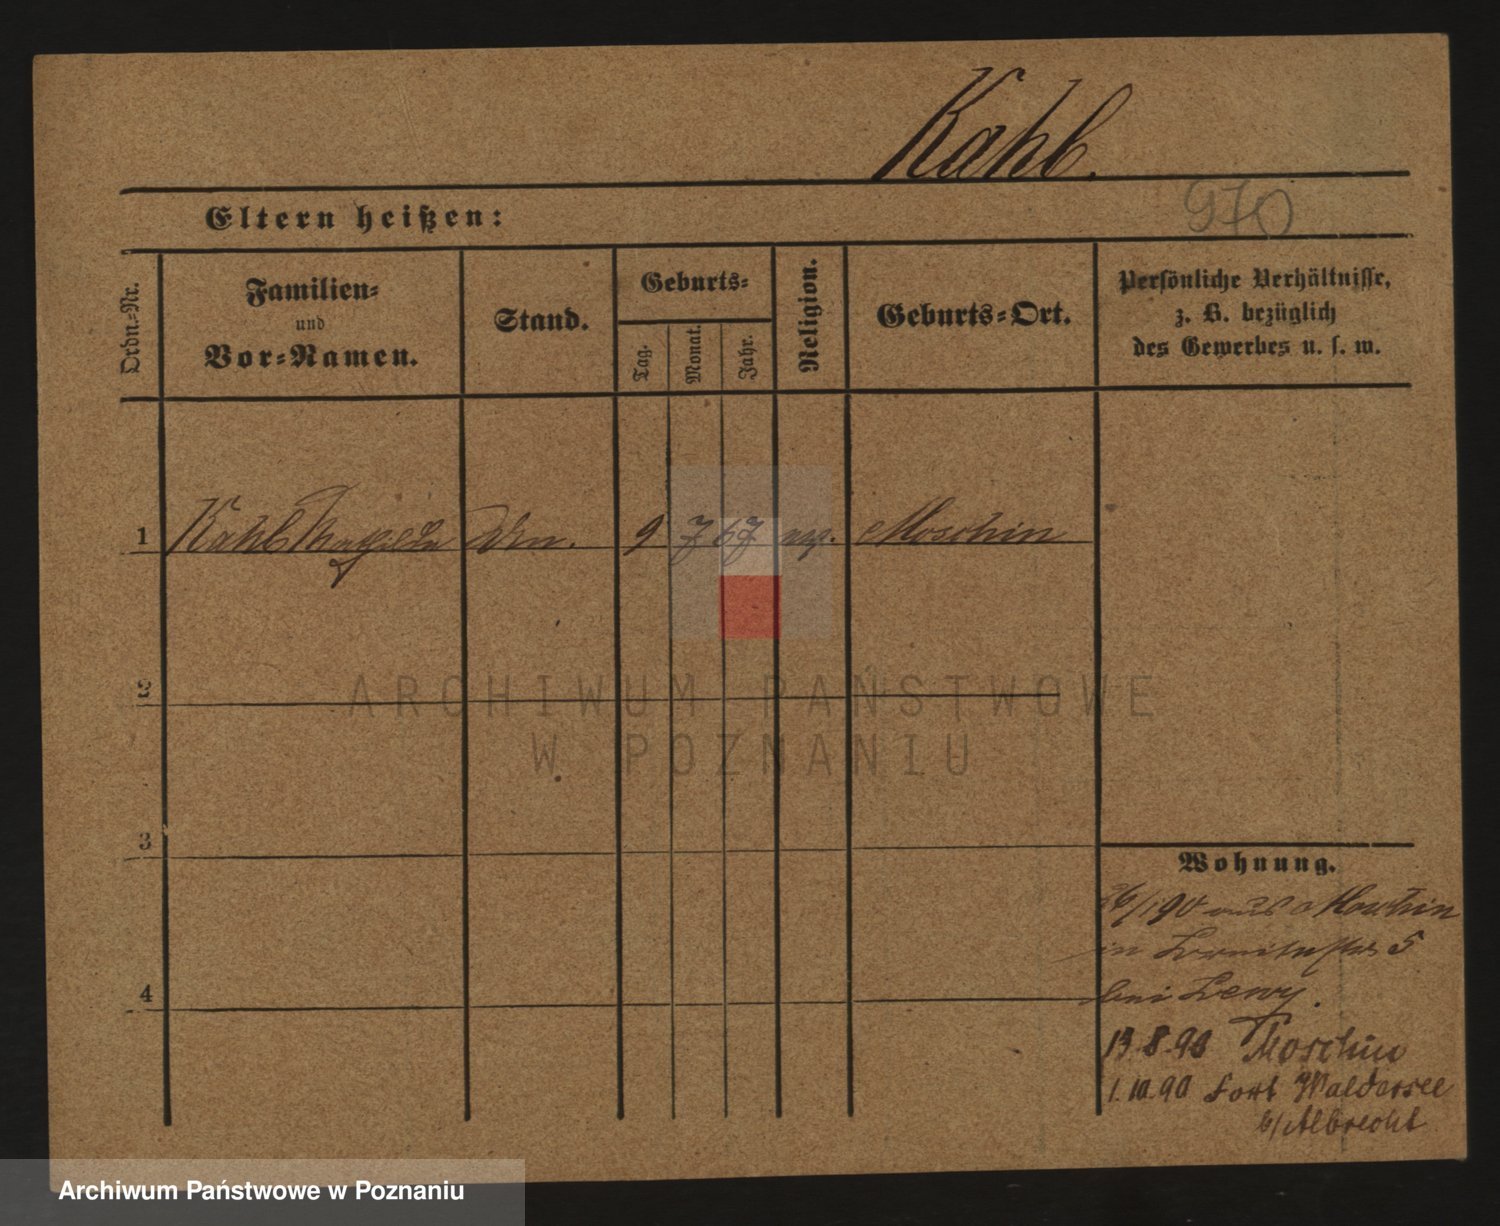 Kahl.
970
Eltern heißen:
Ordn.-Nr.
Familien-
und
Vor-Namen.
Stand.
Geburts-
Tag.
Monat.
Jahr.
Religion.
Geburts-Ort.
Persönliche Verhältnisse,
z. B. bezüglich
des Gewerbes u. s. w.
1 Kahl 9 7 67 Moschin
2
ARCHIWUM PAŃSTWOWE
W POZNANIU
3
Wohnung.
26/1 90 aus Moschin
in 5
bei Lewy.
4
13.8.90 Moschin
1.10.90 Fort Waldersee
b/ Albrecht
Archiwum Państwowe w Poznaniu